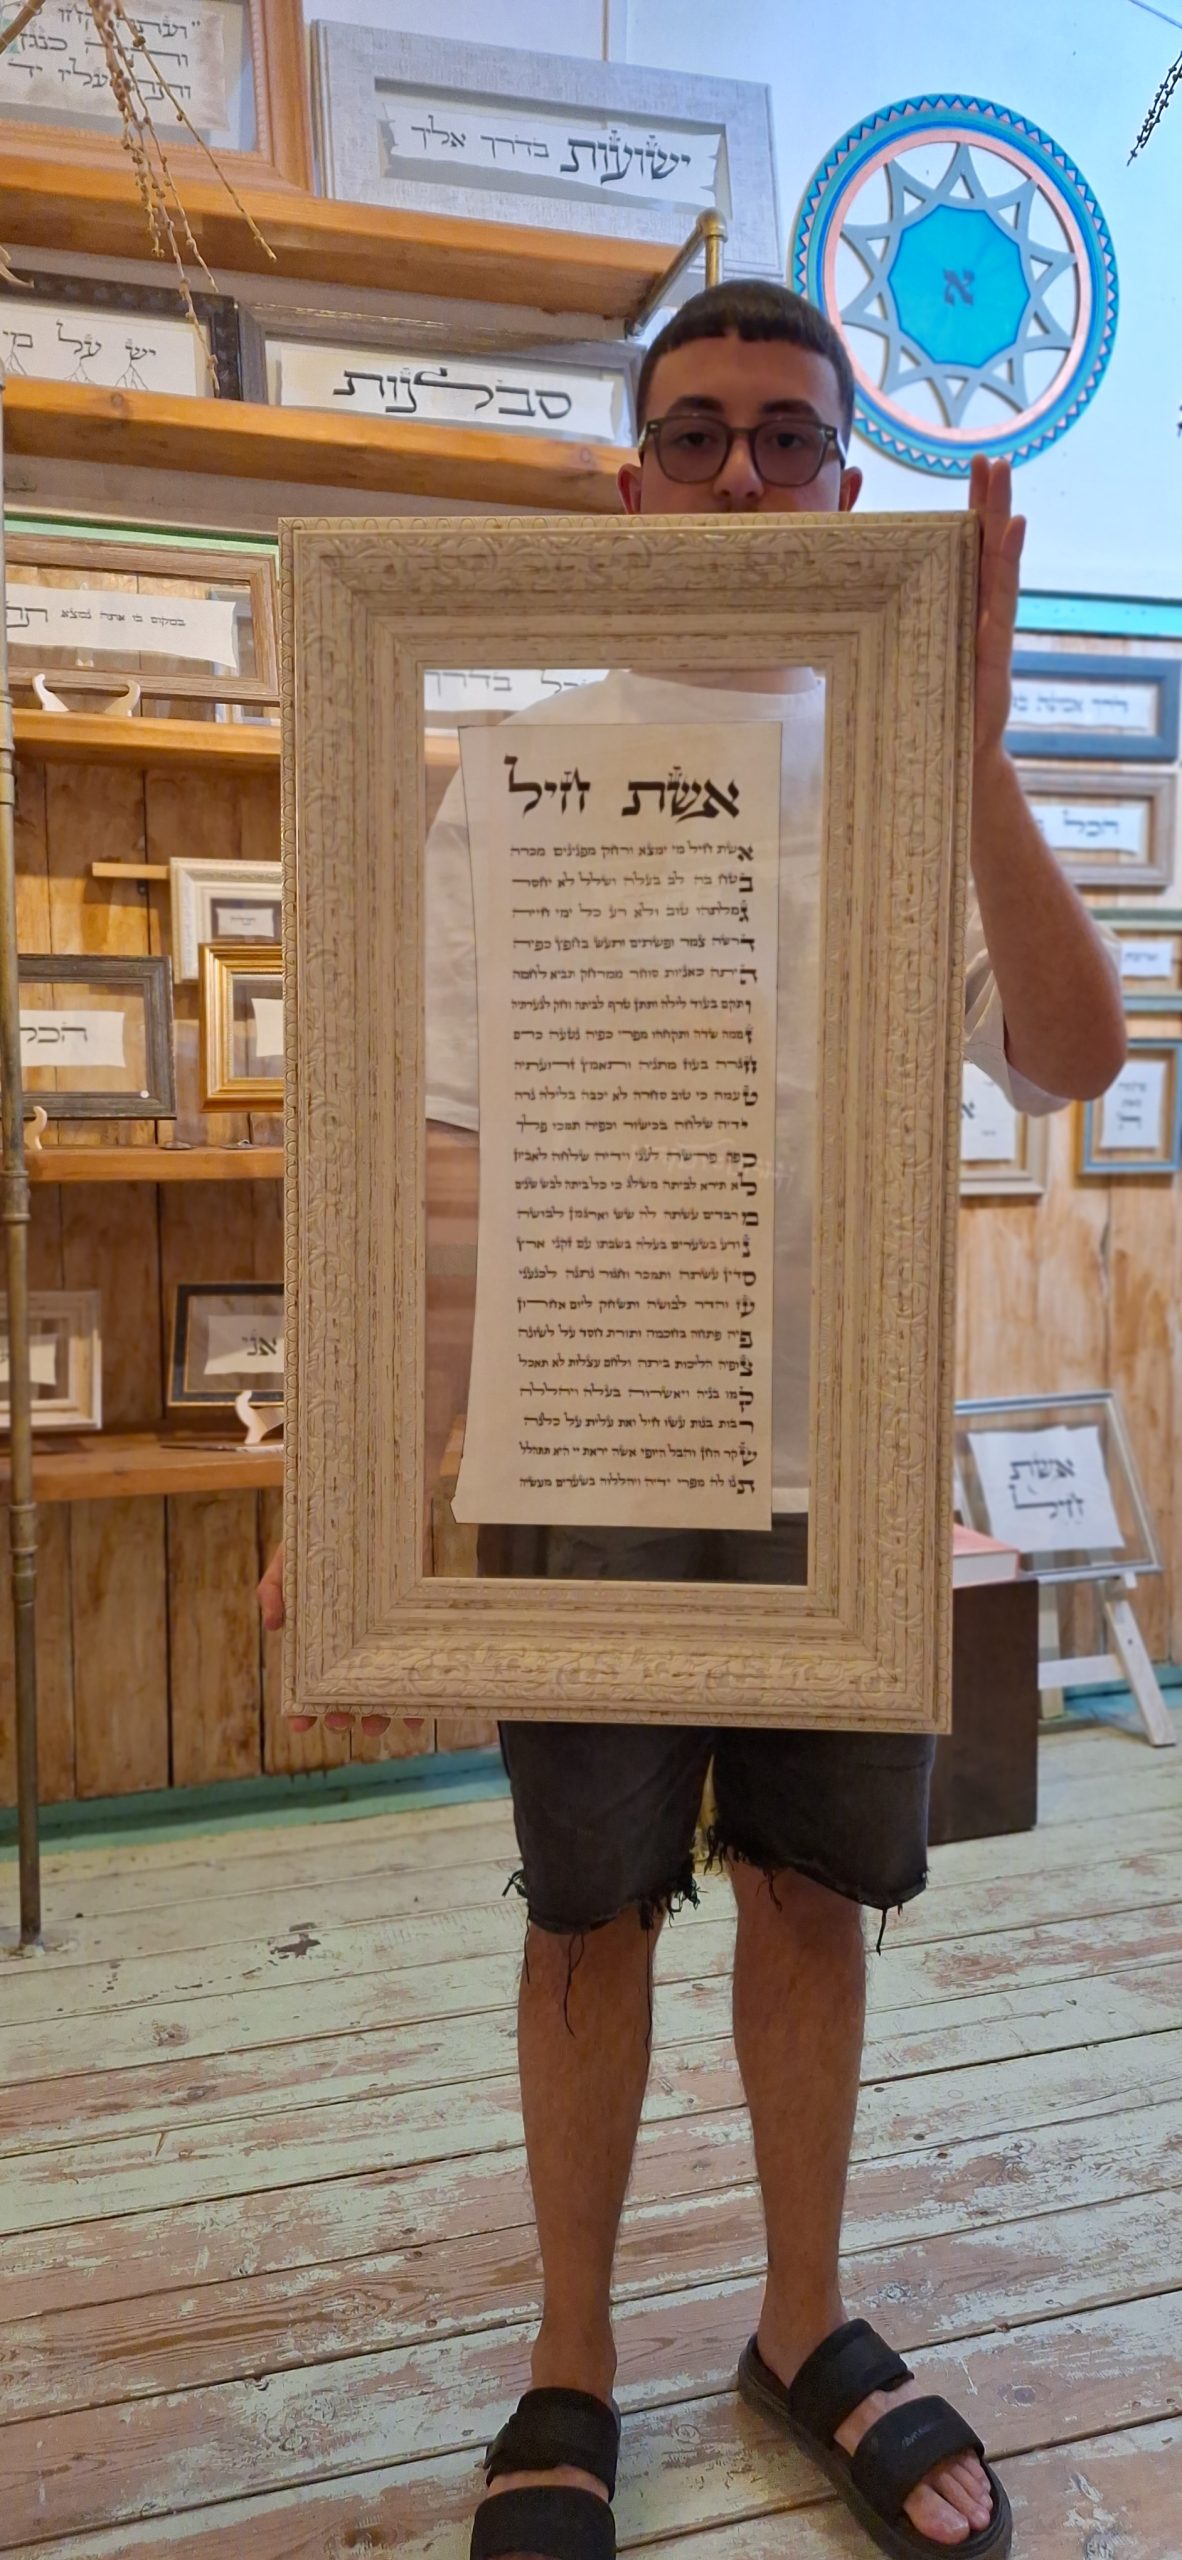 ישועות בדרך אליך
יש על מי
סבלנות
במקום בו אתה נמצא
אשת חיל
אשת חיל מי ימצא ורחק מפנינים מכרה
בטח בה לב בעלה ושלל לא יחסר
גמלתהו טוב ולא רע כל ימי חייה
דרשה צמר ופשתים ותעש בחפץ כפיה
היתה כאניות סוחר ממרחק תביא לחמה
ותקם בעוד לילה ותתן טרף לביתה וחק לנערתיה
זממה שדה ותקחהו מפרי כפיה נטעה כרם
חגרה בעוז מתניה ותאמץ זרועותיה
טעמה כי טוב סחרה לא יכבה בלילה נרה
ידיה שלחה בכישור וכפיה תמכו פלך
כפה פרשה לעני וידיה שלחה לאביון
לא תירא לביתה משלג כי כל ביתה לבש שנים
מרבדים עשתה לה שש וארגמן לבושה
נודע בשערים בעלה בשבתו עם זקני ארץ
סדין עשתה ותמכר וחגור נתנה לכנעני
עז והדר לבושה ותשחק ליום אחרון
פיה פתחה בחכמה ותורת חסד על לשונה
צופיה הליכות ביתה ולחם עצלות לא תאכל
קמו בניה ויאשרוה בעלה ויהללה
רבות בנות עשו חיל ואת עלית על כלנה
שקר החן והבל היופי אשה יראת יי היא תתהלל
תנו לה מפרי ידיה ויהללוה בשערים מעשיה
א
דרך
הכל
הכל
אני
אשת
חיל